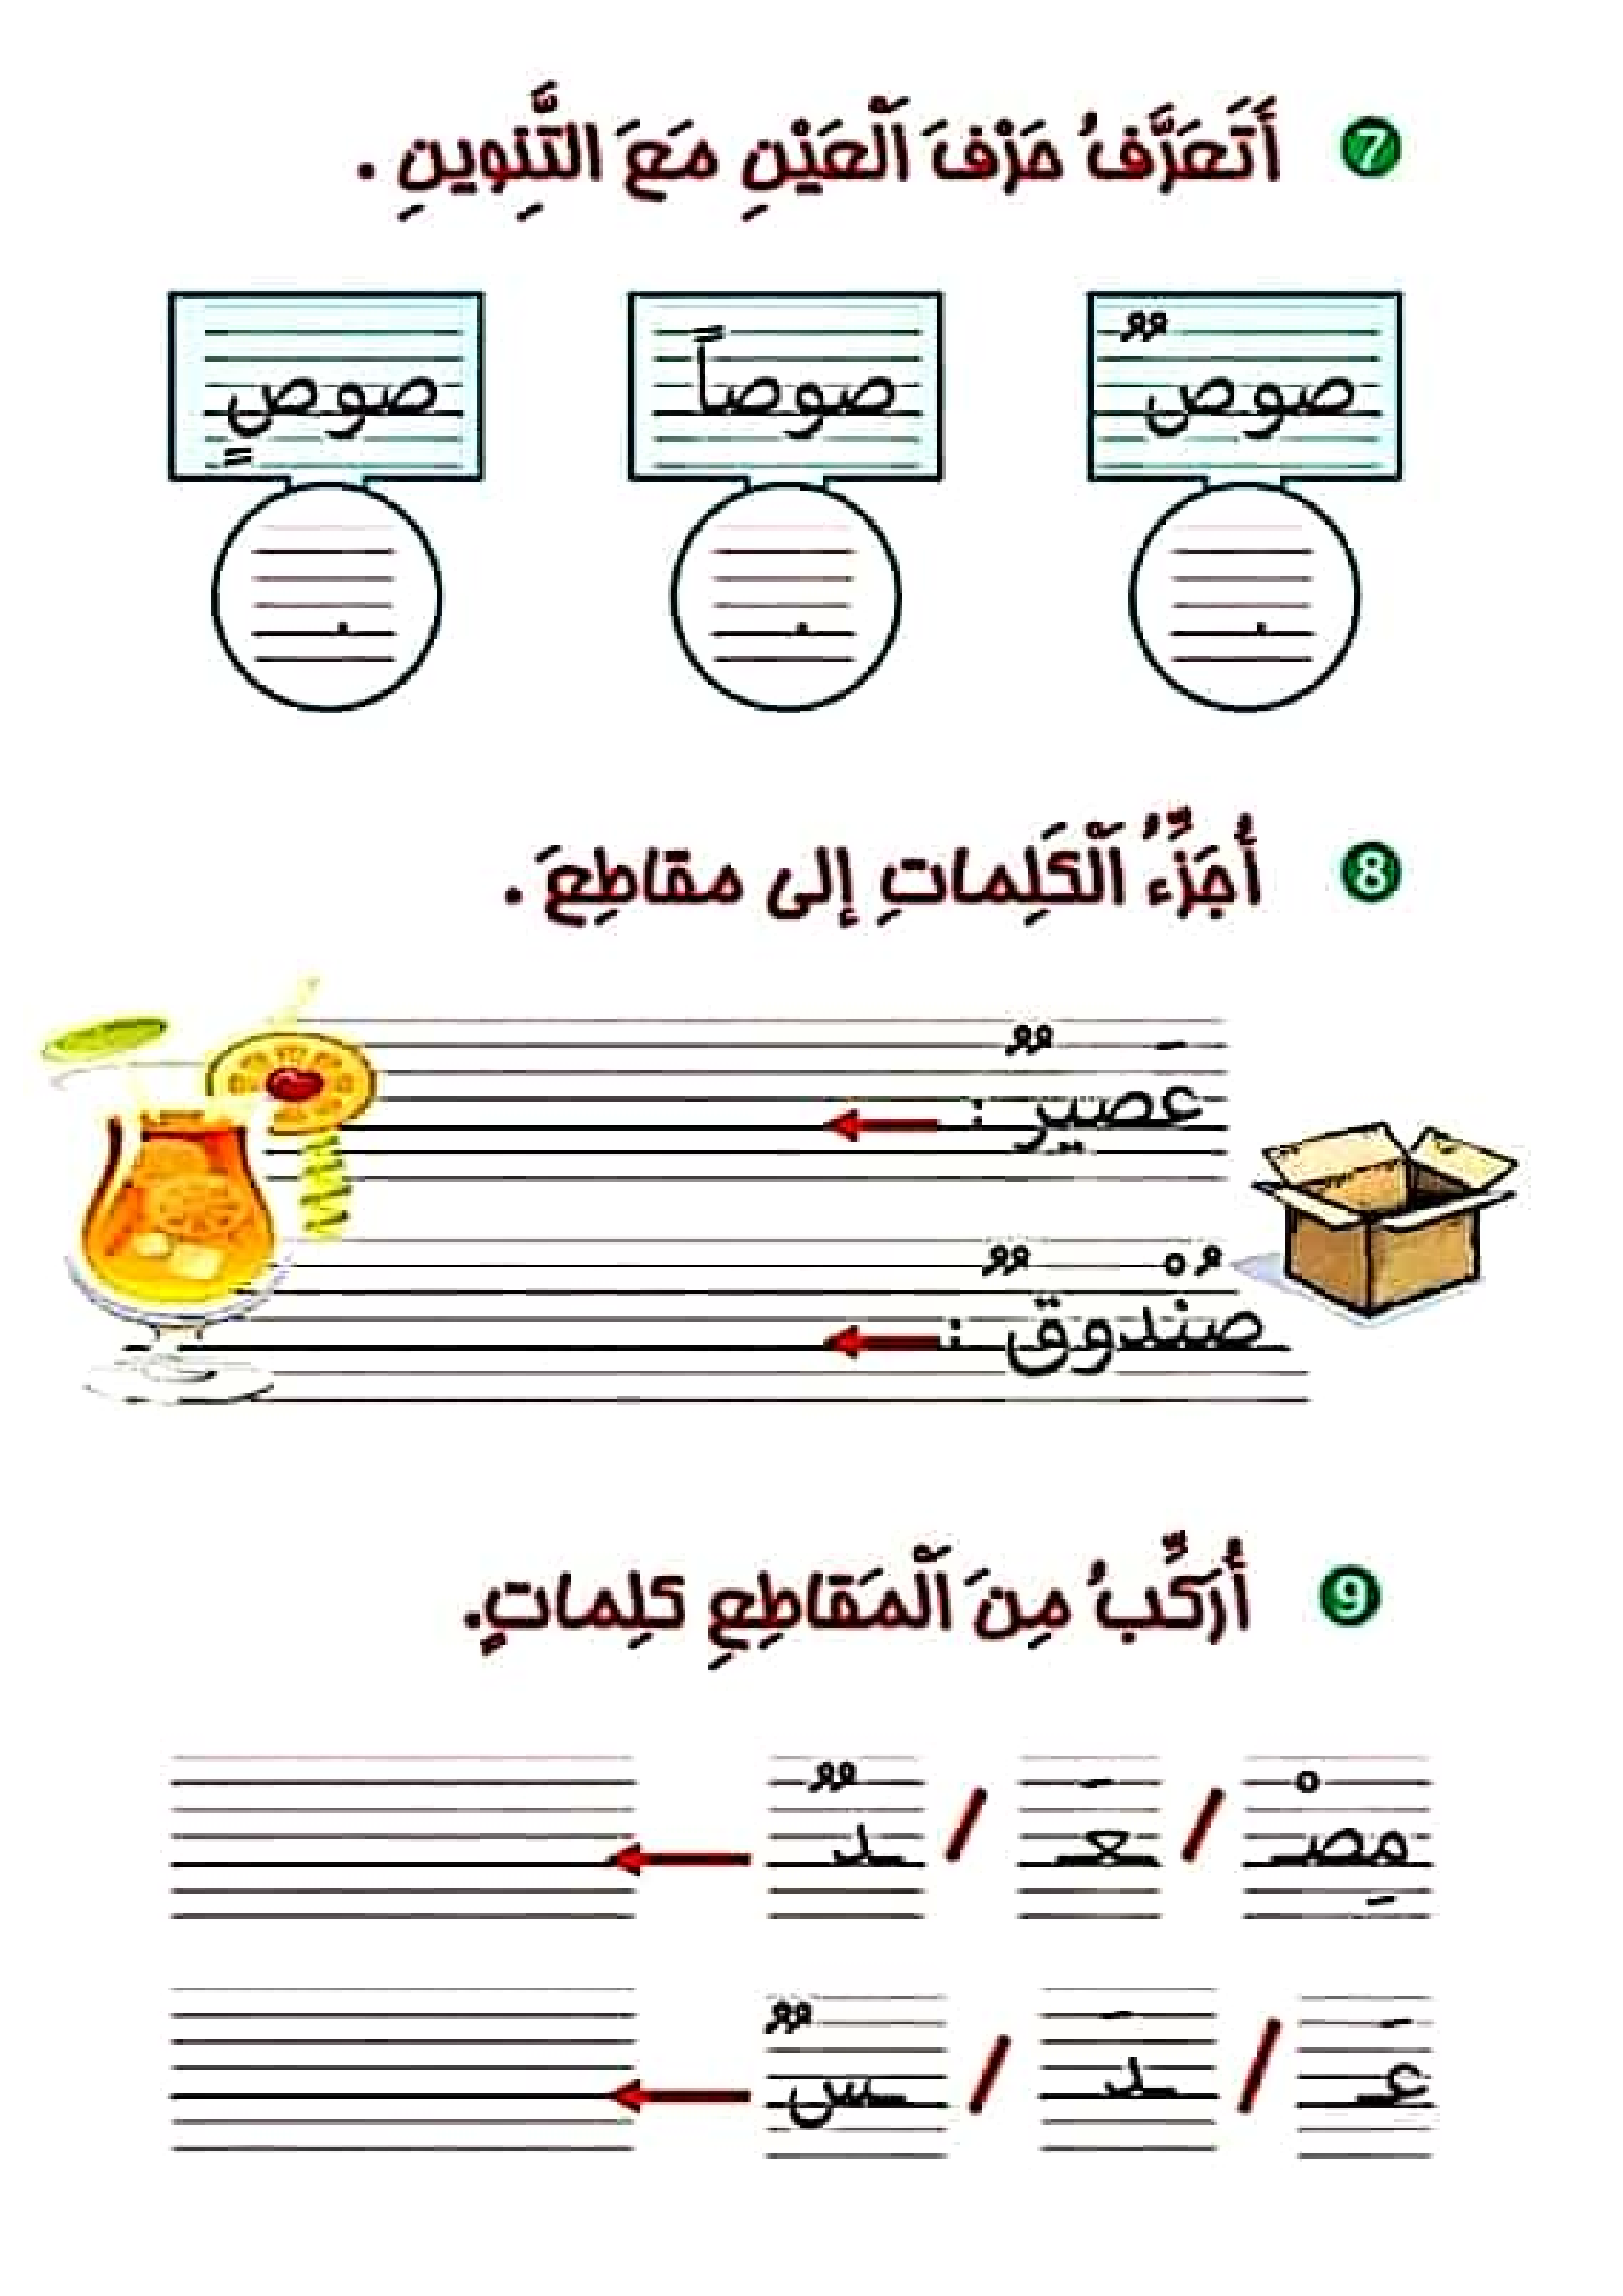 7 أَتَعَرَّفُ حَرْفَ اَلْعَيْنِ مَعَ التَّنِوينِ .
صوصٌ صوصاً صوصٍ
8 أُجَزِّءُ اَلْكَلِماتِ إلى مقاطِعَ .
عَصيرٌ :
صُنْدوقٌ :
9 أُرَكِّبُ مِنَ اَلْمَقاطِعِ كلِماتٍ.
مِصْـ / ـعَـ / ـدٌ
عَـ / ـدَ / ـسٌ